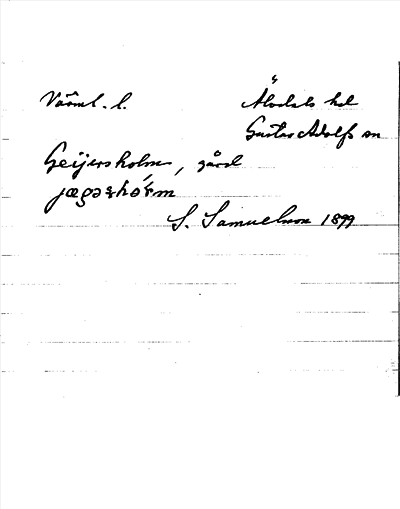 Värml. l. Älvdals hd
Gustav Adolfs sn
Geijersholm, gård
S. Samuelsson 1899